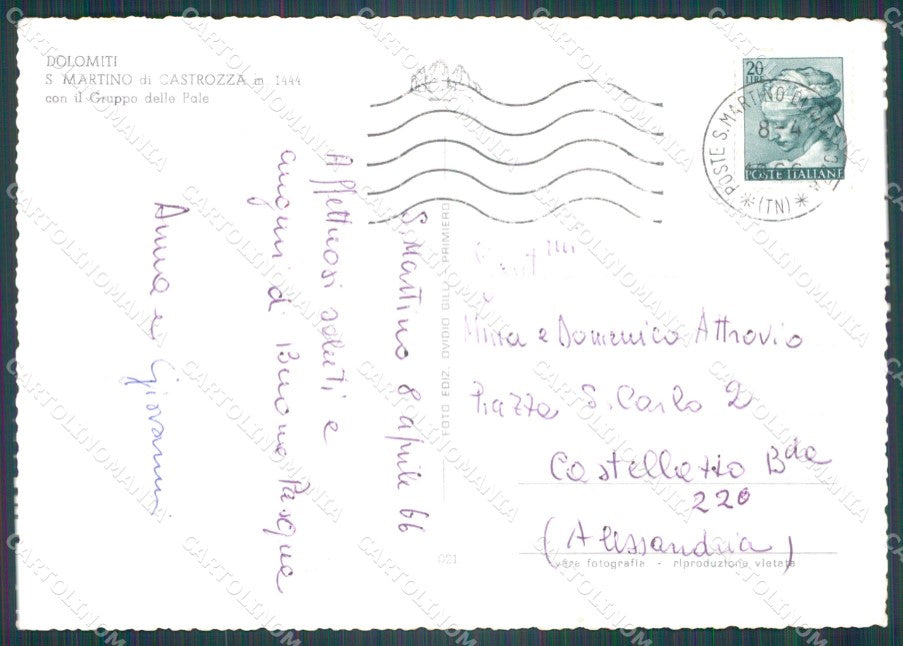 DOLOMITI
S. MARTINO di CASTROZZA m. 1444
con il Gruppo delle Pale
20
LIRE
POSTE ITALIANE
POSTE S. MARTINO DI
8 4
* (TN) *
S. Martino 8 aprile 66
Affettuosi saluti e
auguri di Buona Pasqua
Anna e Giovanni
FOTO EDIZ. OVIDIO GILLI - PRIMIERO
Mina e Domenico Attrovio
Piazza S. Carlo 2
Castellazzo Bda
220
(Alessandria)
021
vera fotografia - riproduzione vietata
CARTOLINOMANIA